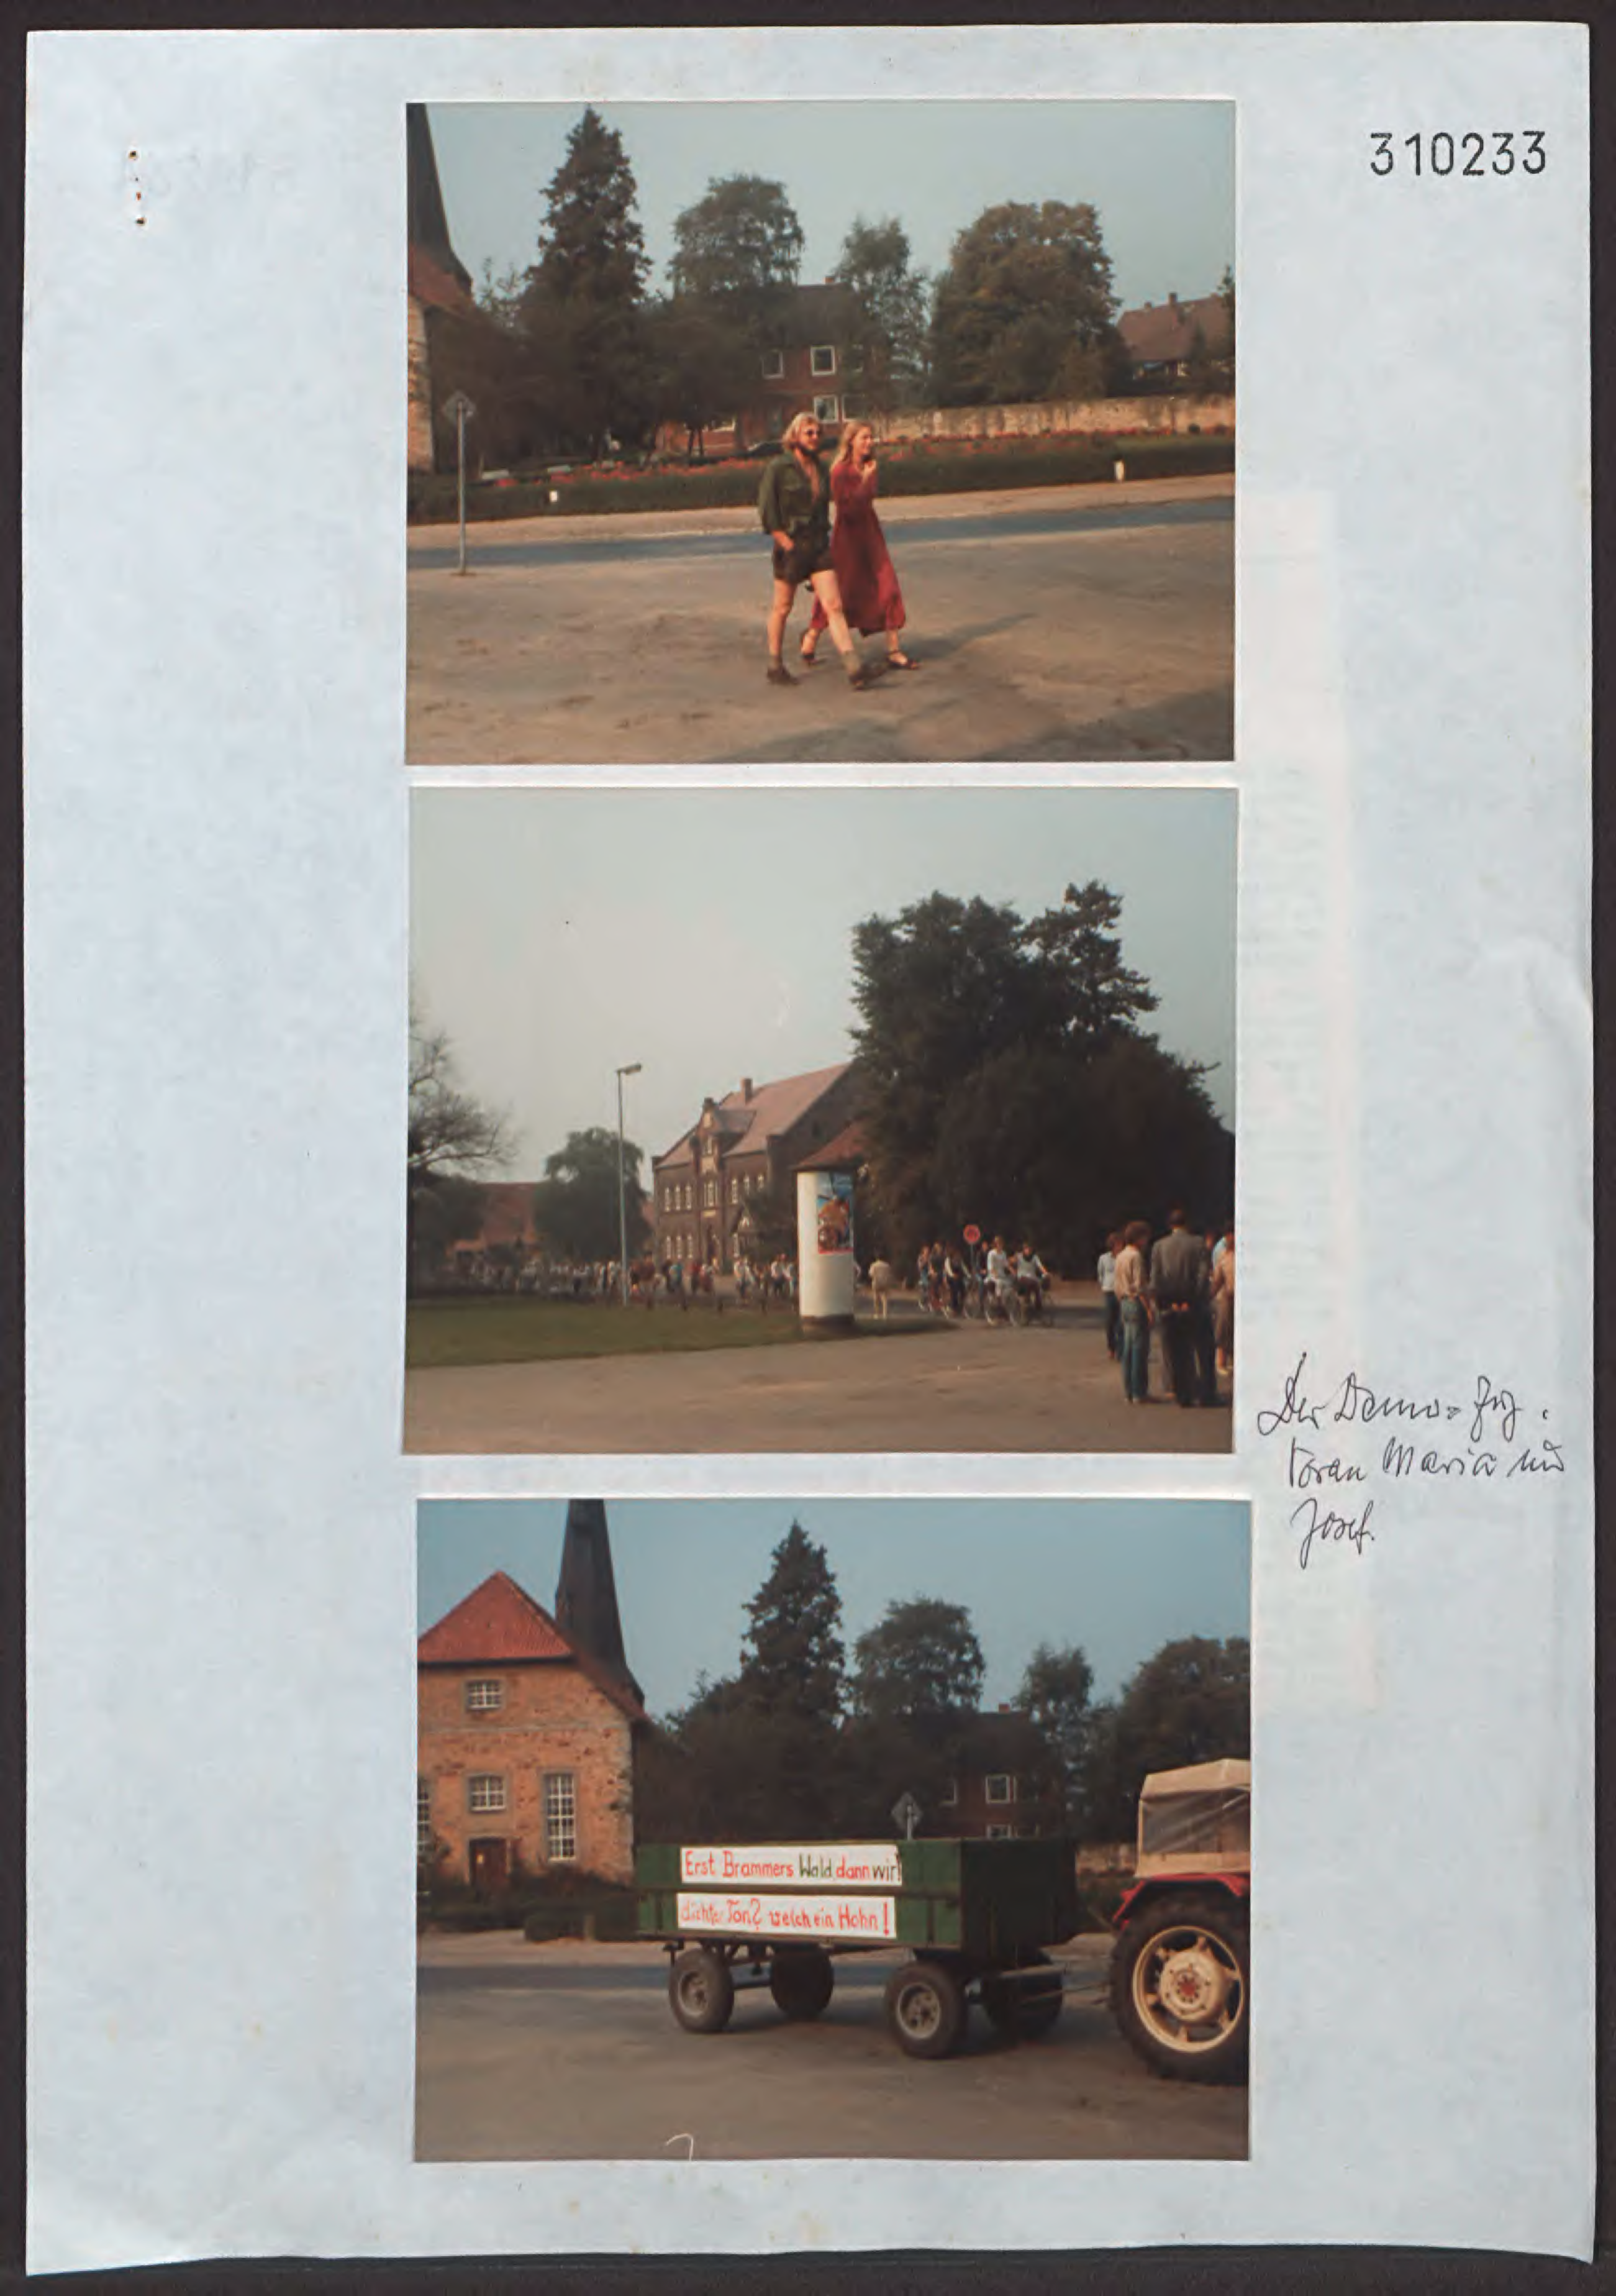 310233
Der Demo-Zug.
Voran Maria und
Josef.
Erst Brammers Wald, dann wir!
dichter Ton? welch ein Hohn!